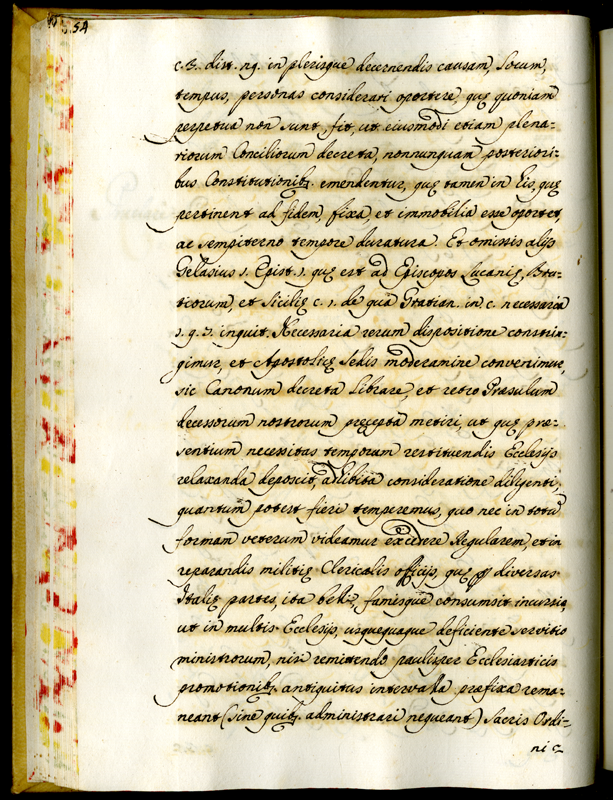 54
c. 3. dist. 29. in plerisque decernendis causam, locum,
tempus, personas considerari oportere, quę quoniam
perpetua non sunt fit, ut eiusmodi etiam plena-
riorum Conciliorum decreta, nonnunquam posteriori-
bus Constitutionib. emendentur, quę tamen in eis, quę
pertinent ad fidem fixa, et immobilia esse oportet,
ac sempiterno tempore duratura. Et omissis alijs
Gelasius 1. Epist. 1. quę est ad Episcopos Lucanię, Bru-
tiorum, et Sicilię c. 1. de qua Gratian. in c. necessaria
1. q. 7. inquit. Necessaria rerum dispositione constrin-
gimur, et Apostolicę Sedis moderamine convenimur,
sic Canonum decreta librare, et retro Pręsulum
decessorum nostrorum pręcepta metiri, ut quę præ-
sentium necessitas temporum restituendis Ecclesijs
relaxanda deposcit, adhibita consideratione diligenti,
quantum potest fieri temperemus, quo nec in totũ
formam veterum videamur excedere Regularem, et in
reparandis militię Clericalis officijs, quę p diversas
Italię partes, ita belli, famesque consumsit incursio,
ut in multis Ecclesijs, usquequaque deficiente servitio
ministrorum, nisi remittendo paulisper Ecclesiasticis
promotionib. antiquitus intervalla præfixa rema-
neant (sine quib. administrari nequeant) Sacris Ordi-
nib.